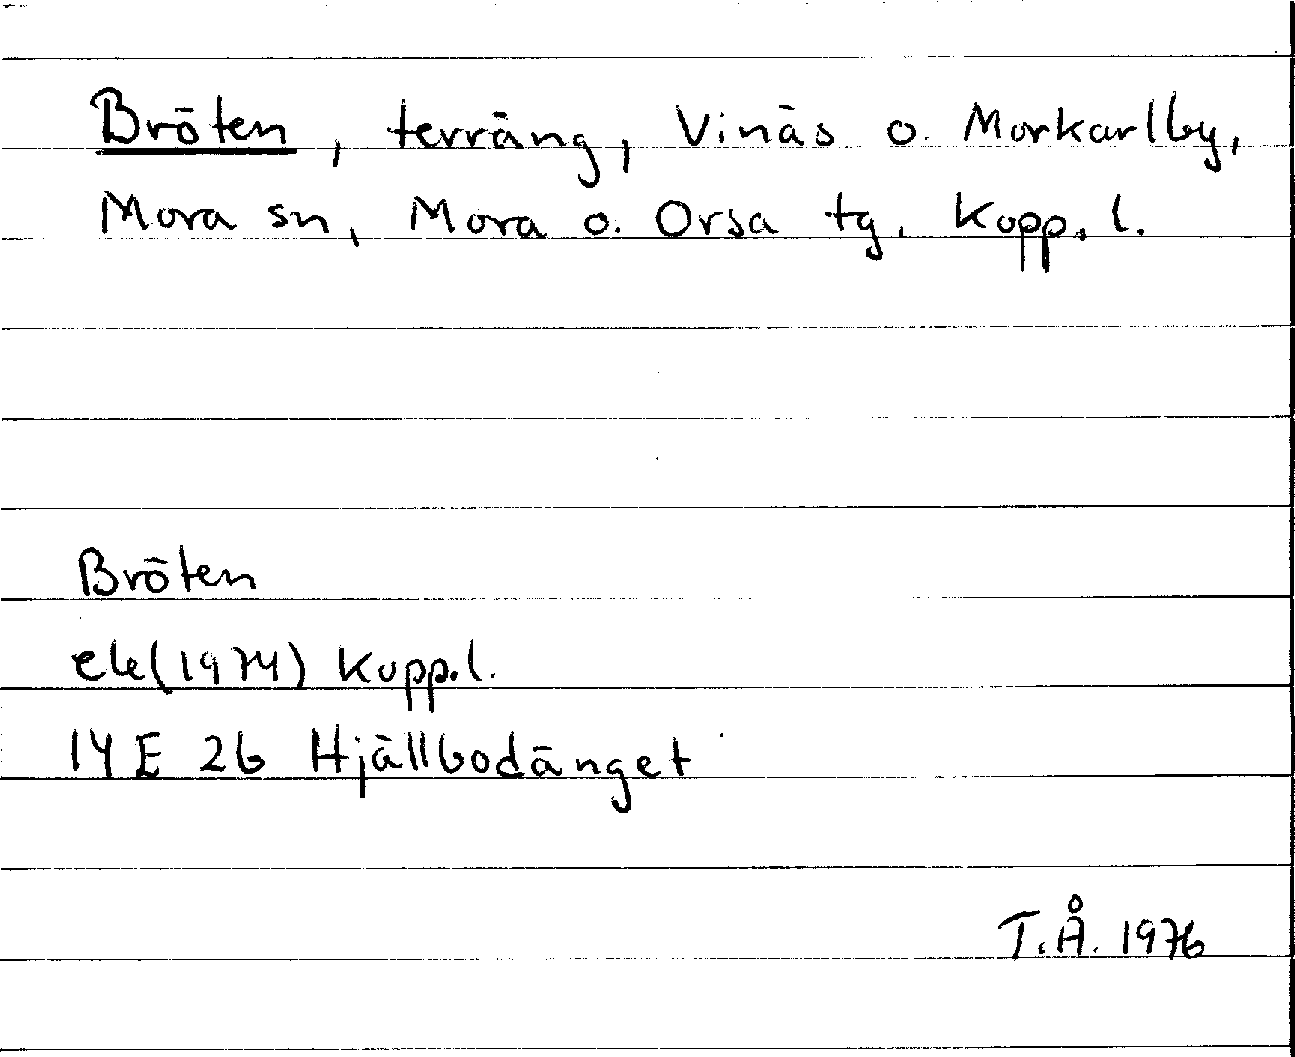 Bröten, terräng, Vinäs o. Morkarlby,
Mora sn, Mora o. Orsa tg. Kopp. l.
Bröten
ek(1974) Kopp.l.
14 E 2b Hjällbodänget
T.Å. 1976